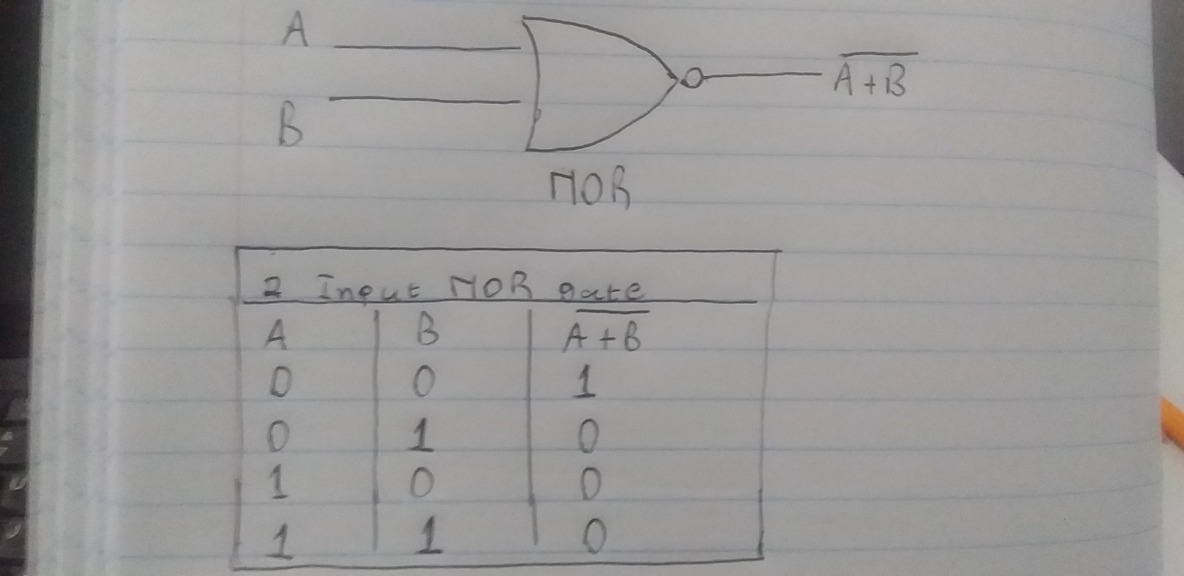 A
B
A+B
NOR
2 Input NOR gate
A B A+B
0 0 1
0 1 0
1 0 0
1 1 0